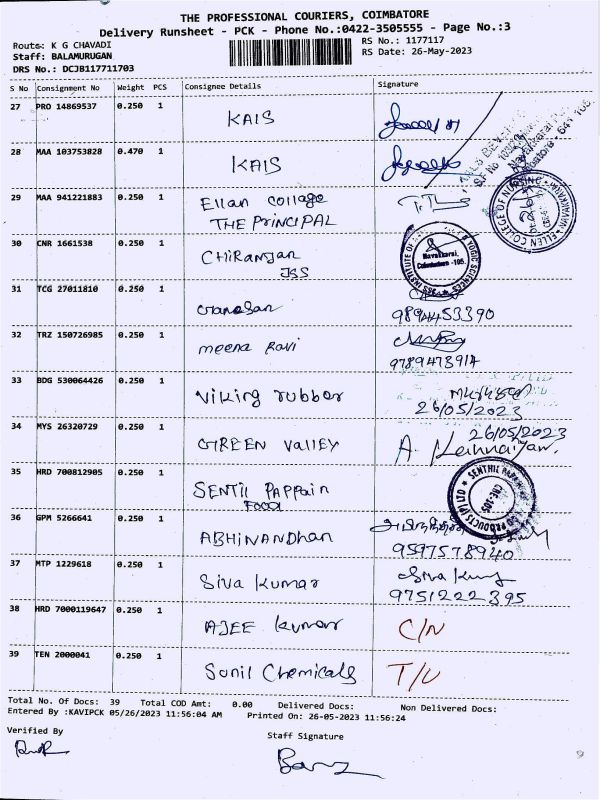 THE PROFESSIONAL COURIERS, COIMBATORE
Delivery Runsheet - PCK - Phone No.:0422-3505555 - Page No.:3
Route: K G CHAVADI
RS No.: 1177117
Staff: BALAMURUGAN
RS Date: 26-May-2023
DRS No.: DCJB117711703
S No Consignment No Weight PCS Consignee Details Signature
27 PRO 14869537 0.250 1 KAIS
28 MAA 103753828 0.470 1 KAIS
29 MAA 941221883 0.250 1 Ellan collage
THE PRINCIPAL
ELLEN COLLEGE OF NURSING
30 CNR 1661538 0.250 1 Chiranjan
JSS
INSTITUTE OF YOGIC SCIENCES
Navakkarai,
Coimbatore -105.
31 TCG 27011810 0.250 1 Ganesan
9894453390
32 TRZ 150726985 0.250 1 meena Ravi
9789473914
33 BDG 530064426 0.250 1 Viking rubber
26/05/2023
34 MYS 26320729 0.250 1 GREEN Valley 26/05/2023
35 HRD 700812905 0.250 1 SENTIL PAPPAIN
FOOD
CBE-105
36 GPM 5266641 0.250 1 ABHINANDhan
9597578940
37 MTP 1229618 0.250 1 Siva Kumar
9751222395
38 HRD 7000119647 0.250 1 AJEE Kumar C/N
39 TEN 2000041 0.250 1 Sunil Chemicals T/U
Total No. Of Docs: 39 Total COD Amt: 0.00 Delivered Docs: Non Delivered Docs:
Entered By :KAVIPCK 05/26/2023 11:56:04 AM Printed On: 26-05-2023 11:56:24
Verified By
Staff Signature